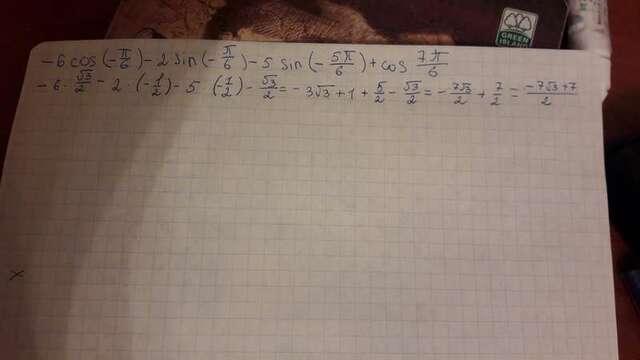 GREEN
ISLAND
-6 cos(-π/6) - 2 sin(-π/6) - 5 sin(-5π/6) + cos 7π/6
-6 · √3/2 - 2 · (-1/2) - 5 (-1/2) - √3/2 = -3√3 + 1 + 5/2 - √3/2 = -7√3/2 + 7/2 = -7√3+7/2
x